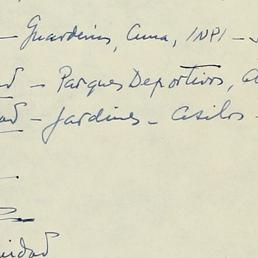 - Guarderías, Cuna, INPI -
- Parques Deportivos,
ad - Jardines - Asilos -
nidad